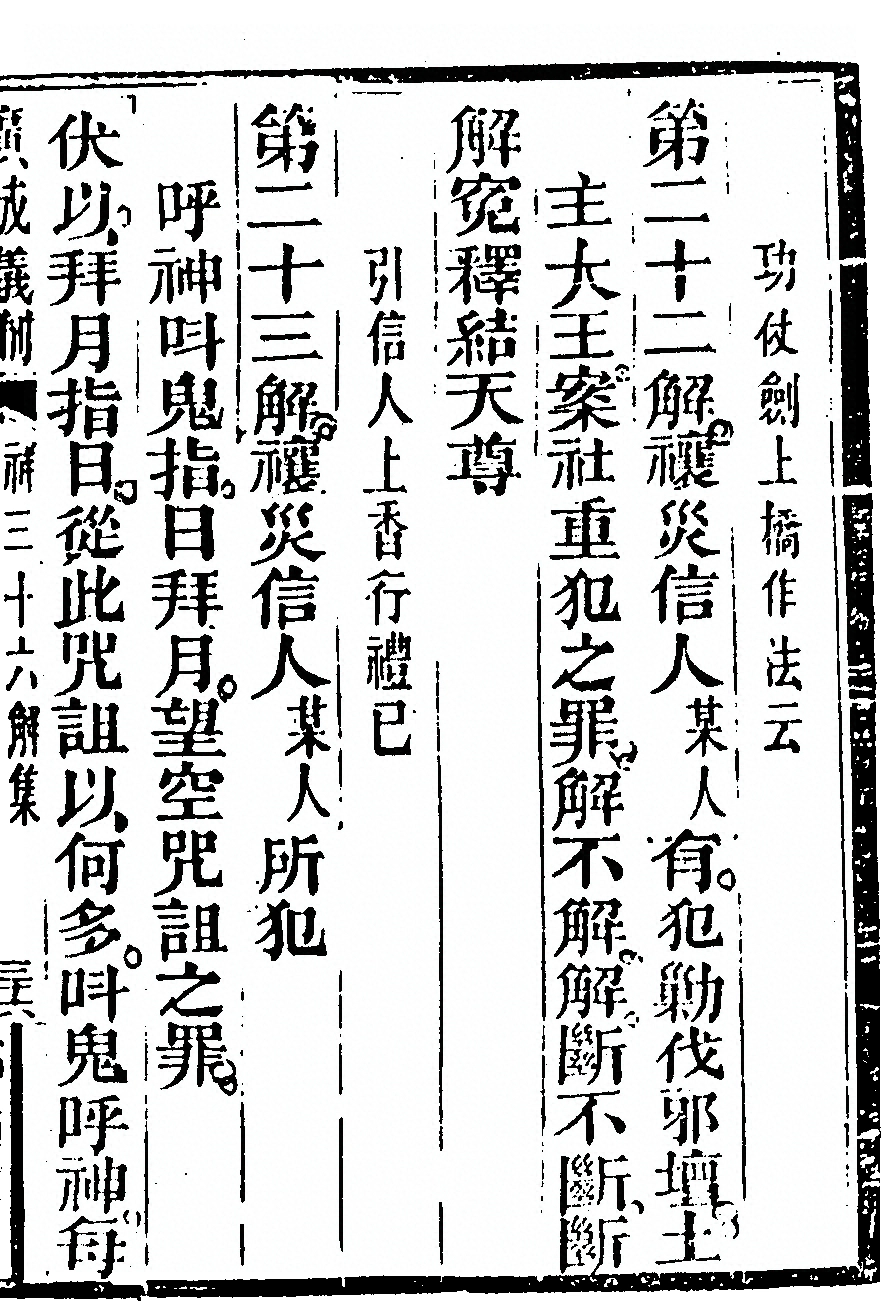 功仗劍上橋作法云
第二十二解禳災信人某人有犯勦伐邪壇土
主大王案社重犯之罪解不解解斷不斷斷
解冤釋結天尊
引信人上香行禮已
第二十三解禳災信人某人所犯
呼神呌鬼指日拜月望空咒詛之罪
伏以拜月指日從此咒詛以何多呌鬼呼神每
廣成儀制 禳三十六解集